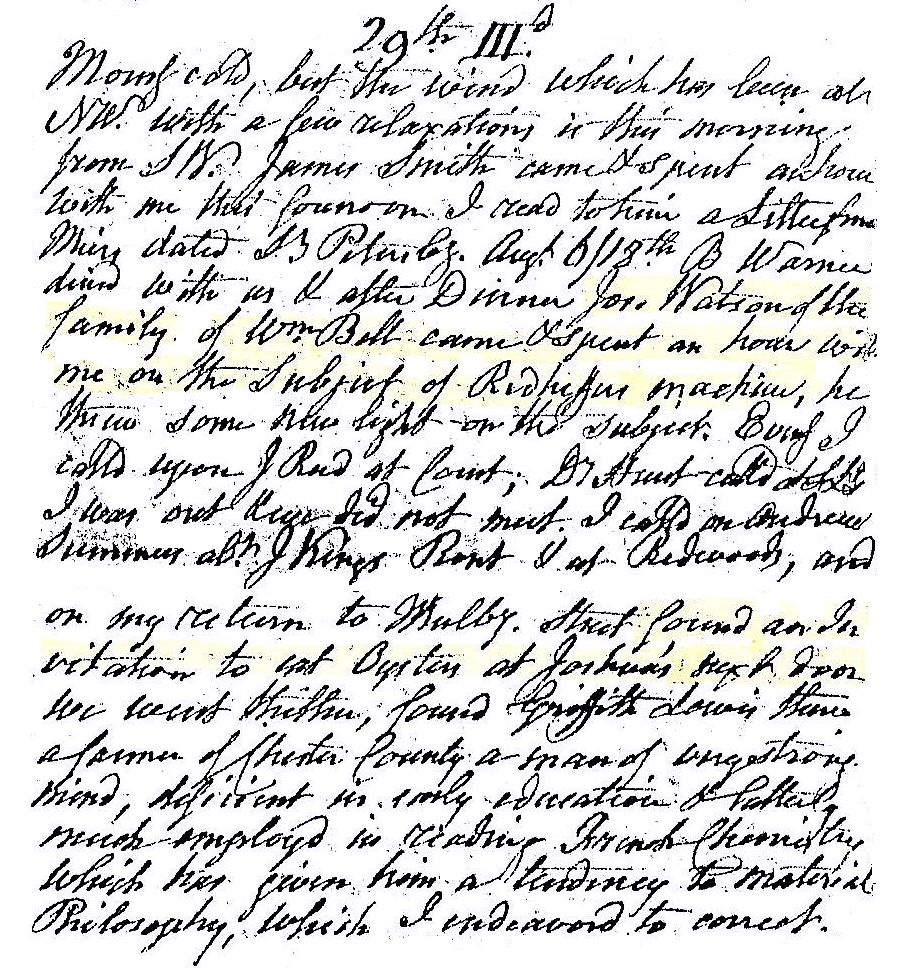 29th III.d
Morng cold, but the wind which has been at
NW. with a few relaxations is this morning
from SW. James Smith came & spent an hour
with me this forenoon I read to him a Letter from
Mary dated St Petersbg. Augt. 6/18th B Warner
dined with us & after Dinner Jos. Watson of the
family of Wm Bell came & spent an hour with
me on the Subject of Redheffers machine, he
threw some new light on the subject. Eveng I
calld upon J Read at Court; Dr Hunt calld
I was out & we did not meet. I calld on Andrew
Summers abt. J Kings Rent & at Redwoods, and
on my return to Mulby. Street found an In
vitation to eat Oysters at Joshua's next door
we went thither, found Griffith Lewis there
a farmer of Chester County a man of very strong
mind, deficient in early education & latterly
much employd in reading French Chemistry
which has given him a tendency to material
Philosophy, which I endeavord to correct.